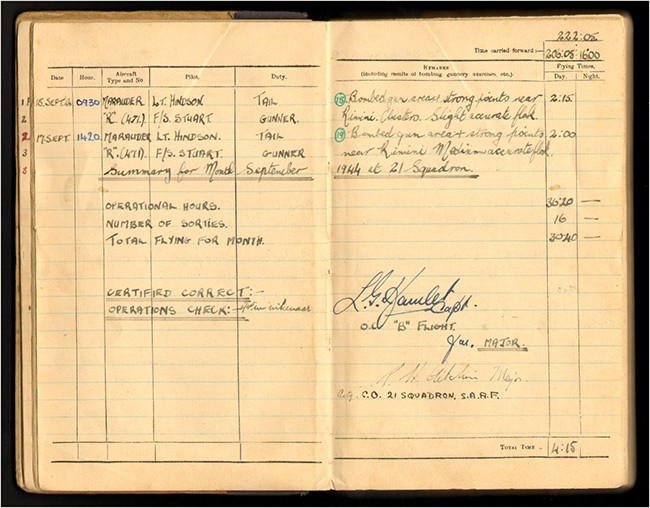 222:05
Time carried forward:— 206:05 1600
Date Hour. Aircraft Type and No Pilot. Duty.
REMARKS (including results of bombing, gunnery, exercises, etc.) Flying Times. Day. Night.
1 15.SEPT. 0930 MARAUDER LT. HINDSON TAIL
2 "R" (471) F/S. STUART GUNNER.
2 17 SEPT. 1420 MARAUDER LT. HINDSON. TAIL
3 "R" (471) F/S. STUART. GUNNER
Summary for Month September
OPERATIONAL HOURS.
NUMBER OF SORTIES.
TOTAL FLYING FOR MONTH.
CERTIFIED CORRECT:—
OPERATIONS CHECK:—
Bombed gun areas strong points near 2:15
Rimini. Slight accurate flak.
Bombed gun area + strong points 2:00
near Rimini Medium accurate flak.
1944 at 21 Squadron.
16 —
30:40 —
L.G. Hamlet Capt.
O.C. "B" FLIGHT.
for. MAJOR.
Major.
C.O. 21 SQUADRON, S.A.A.F.
TOTAL TIME - 4:15